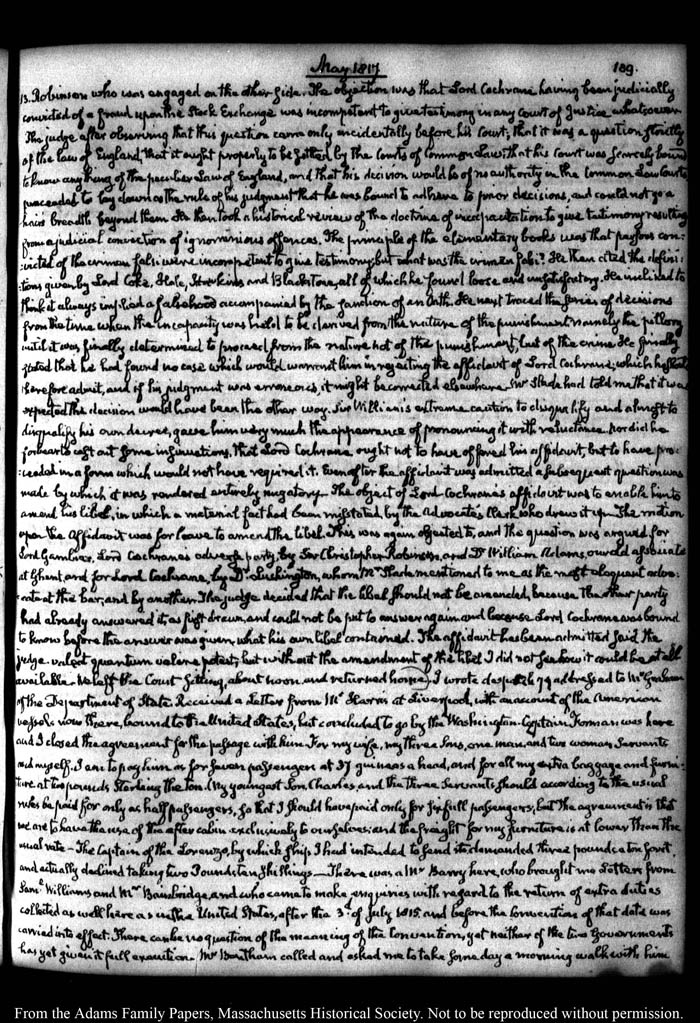 May 1817
189.
13. Robinson who was engaged on the other side. The objection was that Lord Cochrane having been judicially
convicted of a fraud upon the Stock Exchange was incompetent to give testimony in any Court of Justice whatsoever.
The judge after observing that this question came only incidentally before his Court, that it was a question strictly
of the law of England, that it ought properly to be settled by the Courts of Common Law, that his Court was scarcely bound
to know any thing of the peculiar Law of England, and that his decision would be of no authority in the Common Law Courts
proceeded to lay down as the rule of his judgment that he was bound to adhere to prior decisions, and could not go a
hair's breadth beyond them. He then took a historical review of the doctrine of incapacitation to give testimony resulting
from a judicial conviction of ignominious offences. The principle of the elementary books was that persons con-
:victed of the crimen falsi were incompetent to give testimony, but what was the crimen falsi? He then cited the defini-
:tions given by Lord Coke, Hale, Hawkins and Blackstone, all of which he found loose and unsatisfactory. He inclined to
think it always implied a falsehood accompanied by the sanction of an Oath. He next traced the series of decisions
from the time when the incapacity was held to be derived from the nature of the punishment namely the pillory
until it was finally determined to proceed from the nature not of the punishment, but of the crime. He finally
stated that he had found no case which would warrant him in rejecting the affidavit of Lord Cochrane, which he should
therefore admit, and if his judgment was erroneous, it might be corrected elsewhere. Mr Slade had told me that it was
expected the decision would have been the other way. Sir William's extreme caution to disqualify and almost to
disqualify his own decree, gave him very much the appearance of pronouncing it with reluctance, nor did he
forbear to cast out some insinuations, that Lord Cochrane ought not to have offered his affidavit, but to have pro-
:ceeded in a form which would not have required it. Even after the affidavit was admitted a subsequent question was
made by which it was rendered entirely nugatory. The object of Lord Cochrane's affidavit was to enable him to
amend his libel, in which a material fact had been misstated, by the Advocate's Clerk who drew it up. The motion
upon the Affidavit was for leave to amend the libel. This was again objected to, and the question was argued for
Lord Gambier, Lord Cochrane's adverse party, by Sir Christopher Robinson, and Dr William Adams, our old associate
at Ghent, and for Lord Cochrane, by Dr Lushington, whom Mr Slade mentioned to me as the most eloquent advo-
:cate at the bar, and by another. The judge decided that the libel should not be amended, because the other party
had already answered it, as first drawn, and could not be put to answer again, and because Lord Cochrane was bound
to know before the answer was given, what his own libel contained. The affidavit has been admitted said the
judge valeat quantum valere potest, but without the amendment of the libel I did not see how it could be at all
available. We left the Court sitting, about noon, and returned home. I wrote despatch 79 addressed to Mr Graham
of the Department of State. Received a Letter from Mr Maury at Liverpool, with an account of the American
vessels now there, bound to the United States, but concluded to go by the Washington. Captain Forman was here
and I closed the agreement for the passage with him. For my wife, my three Sons, one man, and two woman Servants
and myself. I am to pay him as for seven passengers at 37 guineas a head, and for all my extra baggage and furni-
ture at two pounds Sterling the ton. (My youngest Son, Charles and the three Servants should according to the usual
rules be paid for only as half passengers, so that I should have paid only for six full passengers; but the agreement is that
we are to have the use of the after cabin exclusively to ourselves, and the freight for my furniture is at lower than the
usual rate. The Captain of the Lorenzo, by which ship I had intended to send it demanded three pounds a ton for it,
and actually declined taking two Pounds ten Shillings. There was a Mr Barry here, who brought me Letters from
Saml Williams and Mr Bainbridge, and who came to make enquiries with regard to the return of extra duties
collected as well here as in the United States, after the 3d of July 1815 and before the Convention of that date was
carried into effect. There can be no question of the meaning of the Convention, yet neither of the two Governments
has yet given it full execution. Mr Bentham called and asked me to take some day a morning walk with him
From the Adams Family Papers, Massachusetts Historical Society. Not to be reproduced without permission.